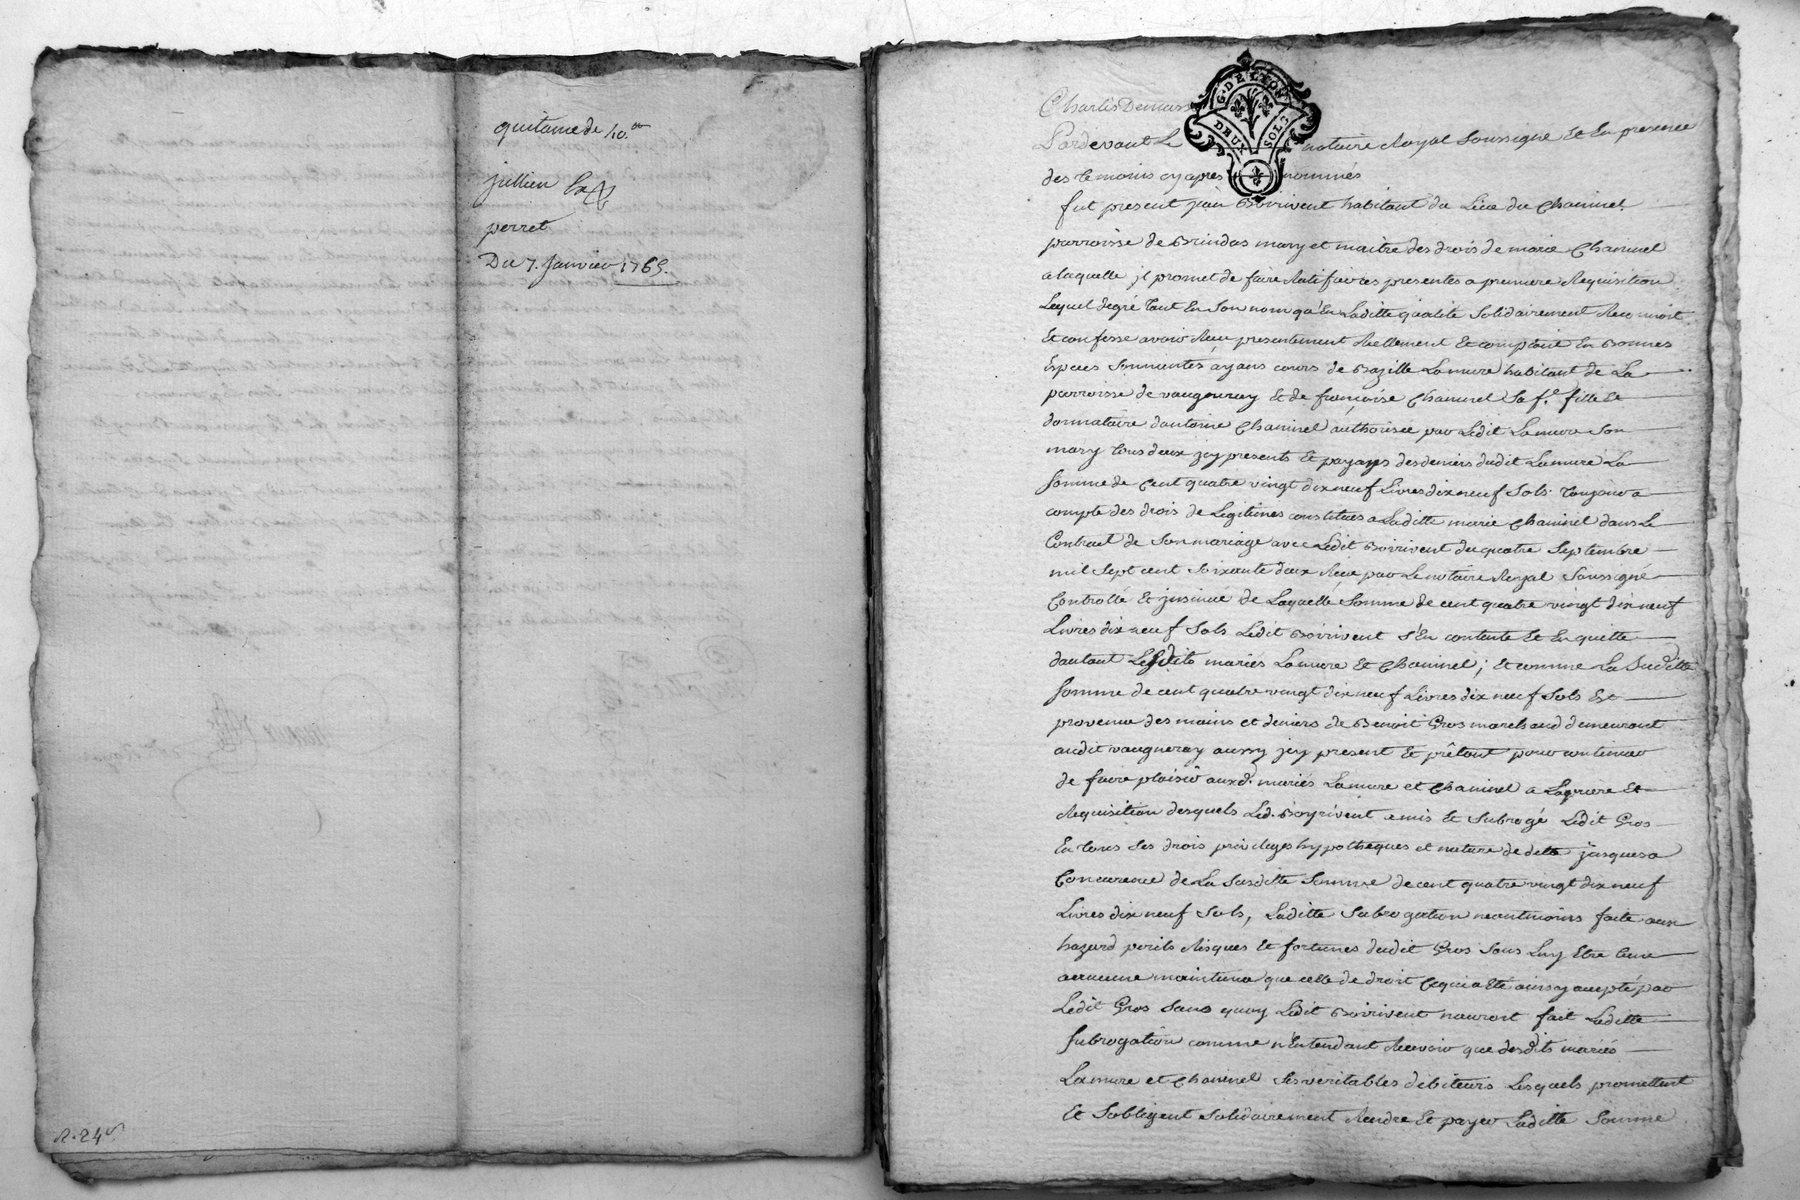 quitance de 40.tt
jullien
perret
Du 7. Janvier 1765.
R. 24 s.
G. DE LYON
DEUX SOLS
Pardevant Le notaire Royal Soussigné Et En presence
des temoins cy apres nommés
fut present jean Boirivent habitant du Lieu du Chaninel
parroisse de Brindas mary et maitre des drois de marie Chaninel
a laquelle jl promet de faire Ratifier ces presentes a premiere Requisition
Lequel degré tant En Son nom qu'En Laditte qualité Solidairement Reconnoit
Et confesse avoir Reçu presentement Reellement Et comptant En Bonnes
Especes Sonnantes ayans cours de Bazille Lamure habitant de La
parroisse de vaugneray Et de françoise Chaninel Sa f.e fille Et
donnataire dantoine Chaninel authorisée par Ledit Lamure Son
mary tous deux jcy presents Et payans des deniers dudit Lamure La
Somme de Cent quatre vingt dix neuf Livres dix neuf Sols toujour a
compte des drois de Legitimes constitues a Laditte marie Chaninel dans Le
Contract de Son mariage avec Ledit Boirivent du quatre Septembre
mil Sept cent Soixante deux Reçu par Le notaire Royal Soussigné
Controllé Et jnsinué de Laquelle Somme de cent quatre vingt dix neuf
Livres dix neuf Sols Ledit Boirivent S'En contente Et En quitte
dautant Lesdits mariés Lamure Et Chaninel; Et comme La Suditte
Somme de cent quatre vingt dix neuf Livres dix neuf Sols Est
provenue des mains et deniers de Benoit Gros marchand demeurant
audit vaugneray aussy jcy present Et prêtant pour continuer
de faire plaisir auxd. mariés Lamure et Chaninel a Lapriere Et
Requisition desquels Led. Boyrivent a mis Et Subrogé Ledit Gros
En tous Ses drois privileges hypotheques et nature de dette jusques a
Concurence de La Susditte Somme de cent quatre vingt dix neuf
Livres dix neuf Sols, Laditte Subrogation neantmoins faite aux
hazard perils Risques Et fortunes dudit Gros Sans Luy Etre tenu
a aucune maintenue que celle de droit Ce qui a Eté ainsy accepté par
Ledit Gros Sans quoy Ledit Boirivent n'auroit fait Laditte
Subrogation comme n'Entendant Recevoir que desdits mariés
Lamure et Chaninel Ses veritables debiteurs Lesquels promettent
Et S'obligent Solidairement Rendre Et payer Laditte Somme